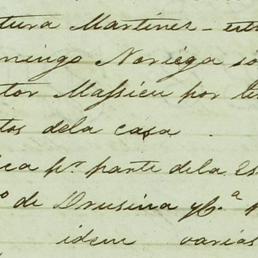 tura Martinez - 
mingo Noriega so
tor Massieu por 
tos dela casa.
ca p.r parte dela Es
o de Drusina y C.a p
idem varias